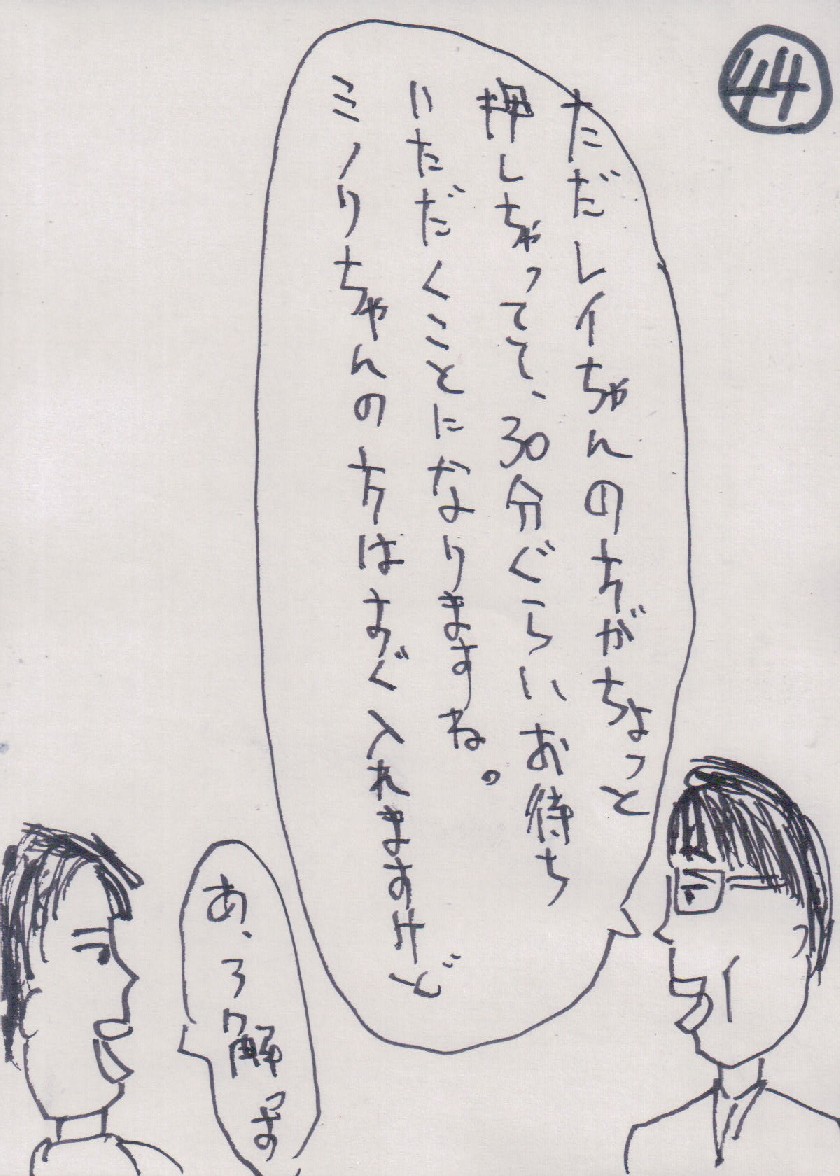 44
ただレイちゃんの方がちょっと
押しちゃってて、30分ぐらいお待ち
いただくことになりますね。
ミノリちゃんの方はすぐ入れますけど
あ、了解っす